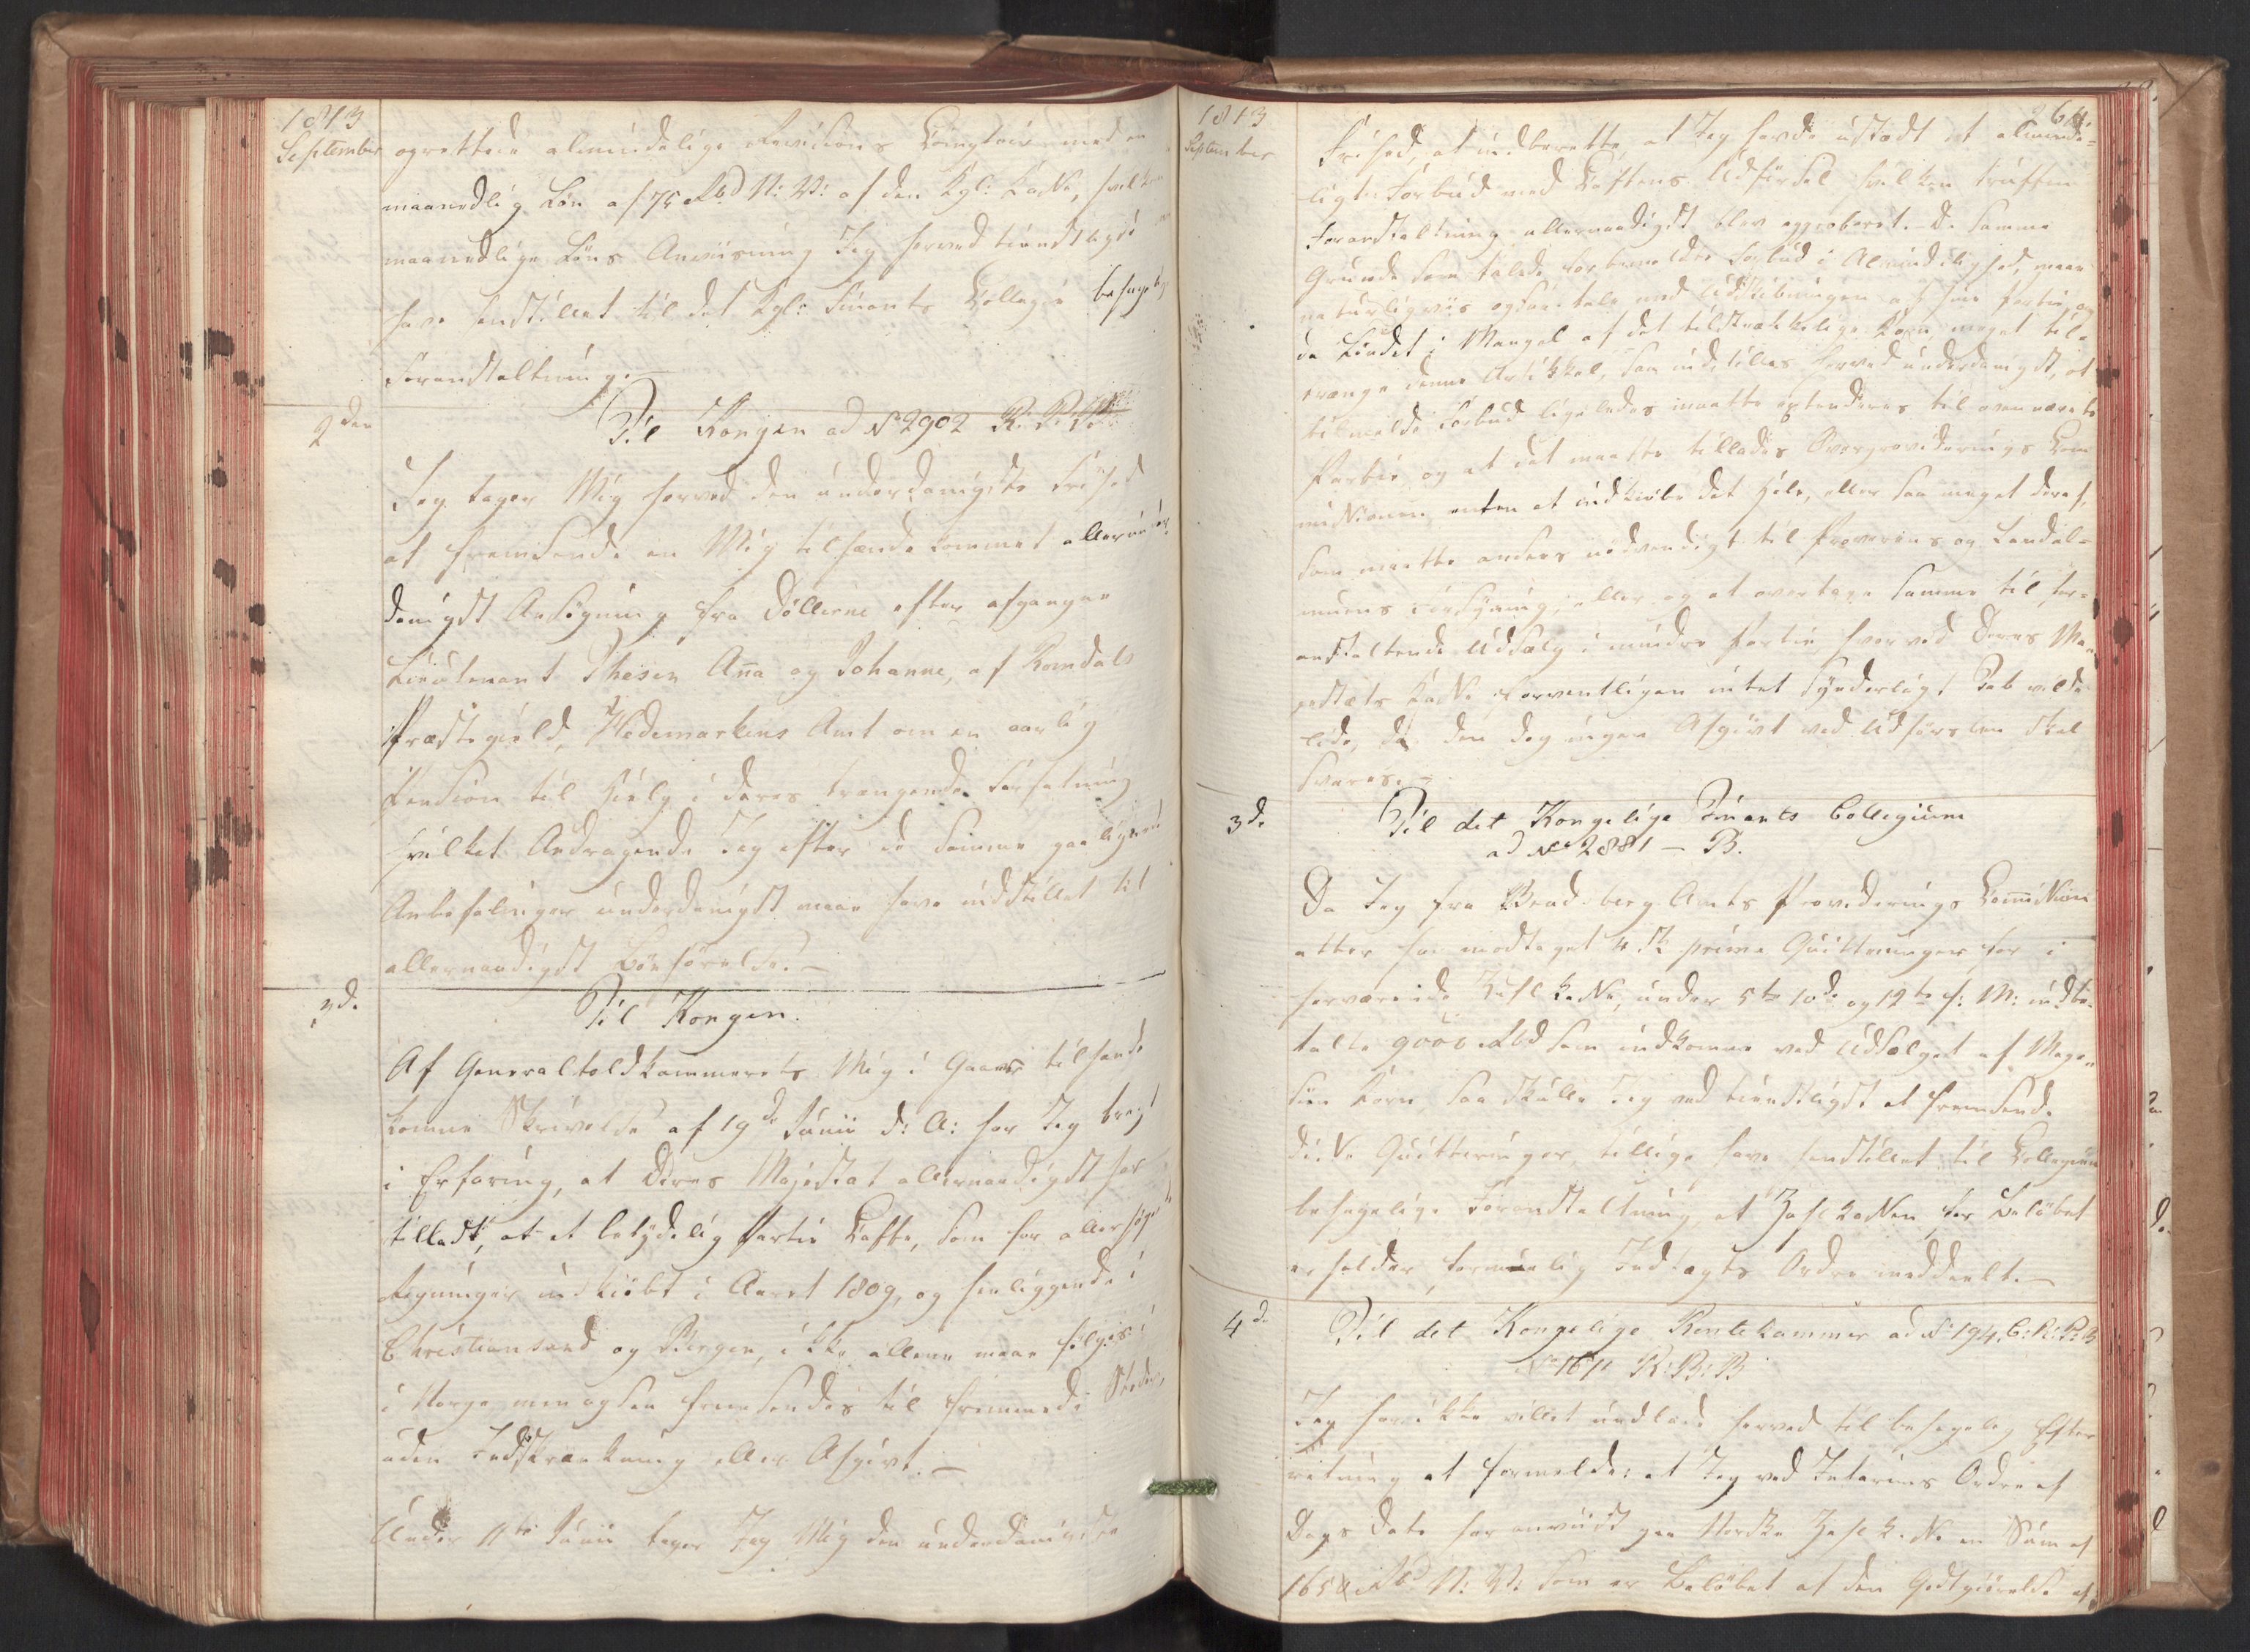 1813
September
oprettede almindelige Revisions Comptoir med en
maanedlig Løn af 75 Rbd N: V: af den Kgl: Kasse, hvilken
maanedlige Løns Anviisning Jeg herved tienstligst
have henstillet til det Kgl: Finants Collegie behagelige
Foranstaltning.—
2den
Til Kongen ad No 2902
Jeg tager Mig herved den underdanigste Frihed
at fremsende en Mig tilhænde kommet allerunder
danigst Ansøgning fra Døttrene efter afgangne
Lieutenant Thesen Ana og Johanne, af Romdals
Præstegield, Hedemarkens Amt om en aarlig
Pension til Hielp i deres trængende Forfatning
hvilket Andragende Jeg efter de samme
Anbefalinger underdanigst maae have indstillet til
allernaadigst Bønhørelse.—
2d.
Til Kongen.
Af Generaltoldkammerets Mig i Gaar tilhænde
komne Skrivelse af 19de Junii d: A: har Jeg bragt
i Erfaring, at Deres Majestæt allernaadigst har
tilladt, at et betydelig Partie Kaffe, som for allerhøieste
Regninger indkiøbt i Aaret 1809, og henliggende i
Christiansand og Bergen, ikke allene maae sælges
i Norge men ogsaa fremsendes til fremmede Steder,
uden Indskrænkning eller Afgivt.—
Under 11te Junii tager Jeg Mig den underdanigste
1813
September
264.
Frihed, at indberette, at Jeg havde udstædt et alminde-
ligt Forbud mod Kaffens Udførsel hvilken trufne
Foranstaltning allernaadigst blev approberet. De samme
Grunde som talede for bemeldte Forbud i Almindelighed, maae
naturligviis ogsaa tale mod Udskibningen af hine Partie, og
da Landet i Mangel af det tilstrækkelige Korn meget til-
trænge denne Artikkel, saa indstilles herved underdanigst, at
bemeldte Forbud ligeledes maatte extenderes til ovennævnte
Partie og at det maatte tillades Overprovideringscom
missionen enten at indkiøbe det Hele, eller saa meget deraf,
som maatte ansees nødvendigt til Proverins og Landal-
muens Forsyning, eller og at overtage samme til for-
anstaltende Udsalg i mindre Partie hvorved Deres Ma
jestæts Kasse forventligen intet synderligt Tab vilde
lide, da den dog ingen Afgivt ved Udførslen skal
svares.—
3d.
Til det Kongelige Finants Collegium
ad No 2881 — B.
Da Jeg fra Bradsberg Amts Provederings Commission
atter har modtaget 4 Stk prima Quitteringer for i
herværende Zahlkasse, under 5te 10de og 12te f: M: indbe-
talte 9000 Rbd som indkomne ved Udsalget af Maga-
sin Korn, saa skulle Jeg ved tienstligst at fremsende
disse Quitteringer, tillige have henstillet til Collegiets
behagelige Foranstaltning, at Zahlkassen for Beløbet
erholder formelig Indtægts Ordre meddeelt.—
4d.
Til det Kongelige Rentekammer ad No 194. C: R: P: B
No 1611 R: B: B
Jeg har ikke villet undlade herved til behagelig Efter
retning at formelde: at Jeg ved Interims Ordre af
Dags Dato har anviist paa Norske Zahlkasse en Sum af
1650 Rbd N: V: som er Beløbet af den Godtgiørelse af